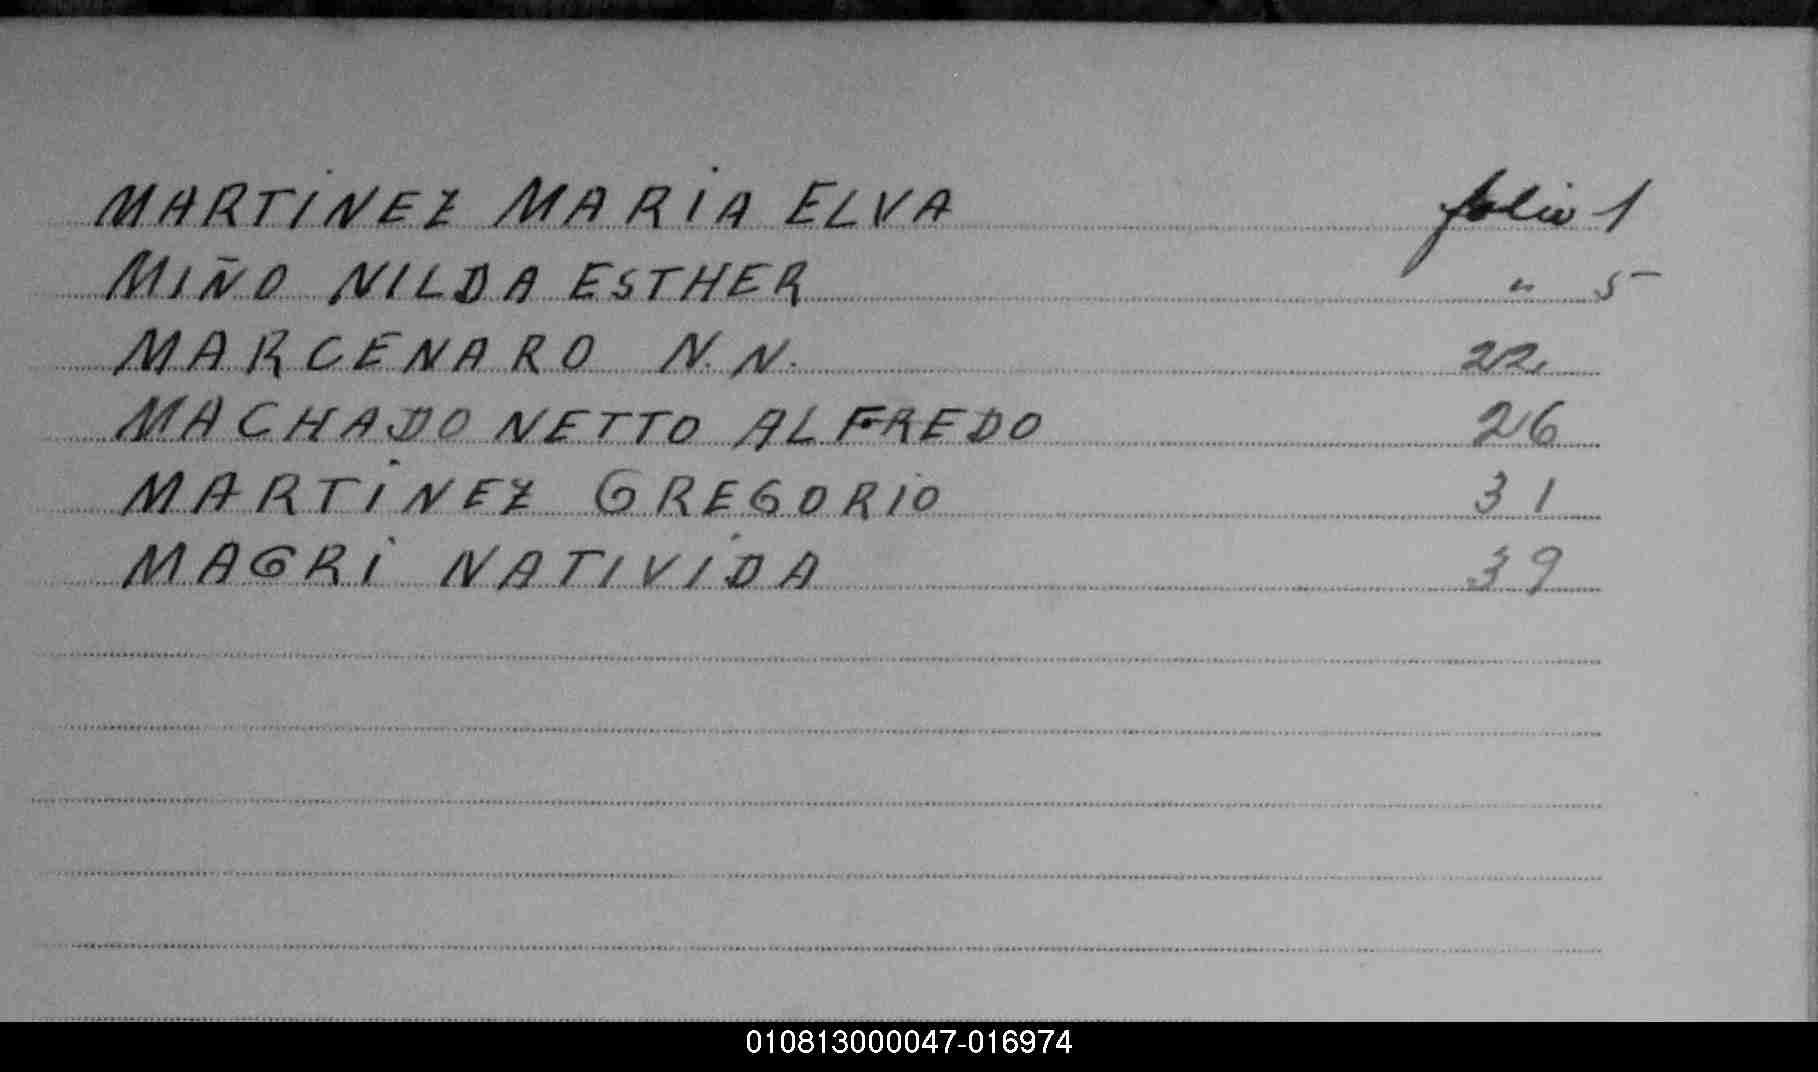 MARTINEZ MARIA ELVA folio 1
MIÑO NILDA ESTHER " 5
MARCENARO N.N. 22
MACHADO NETTO ALFREDO 26
MARTINEZ GREGORIO 31
MAGRI NATIVIDA 39
010813000047-016974